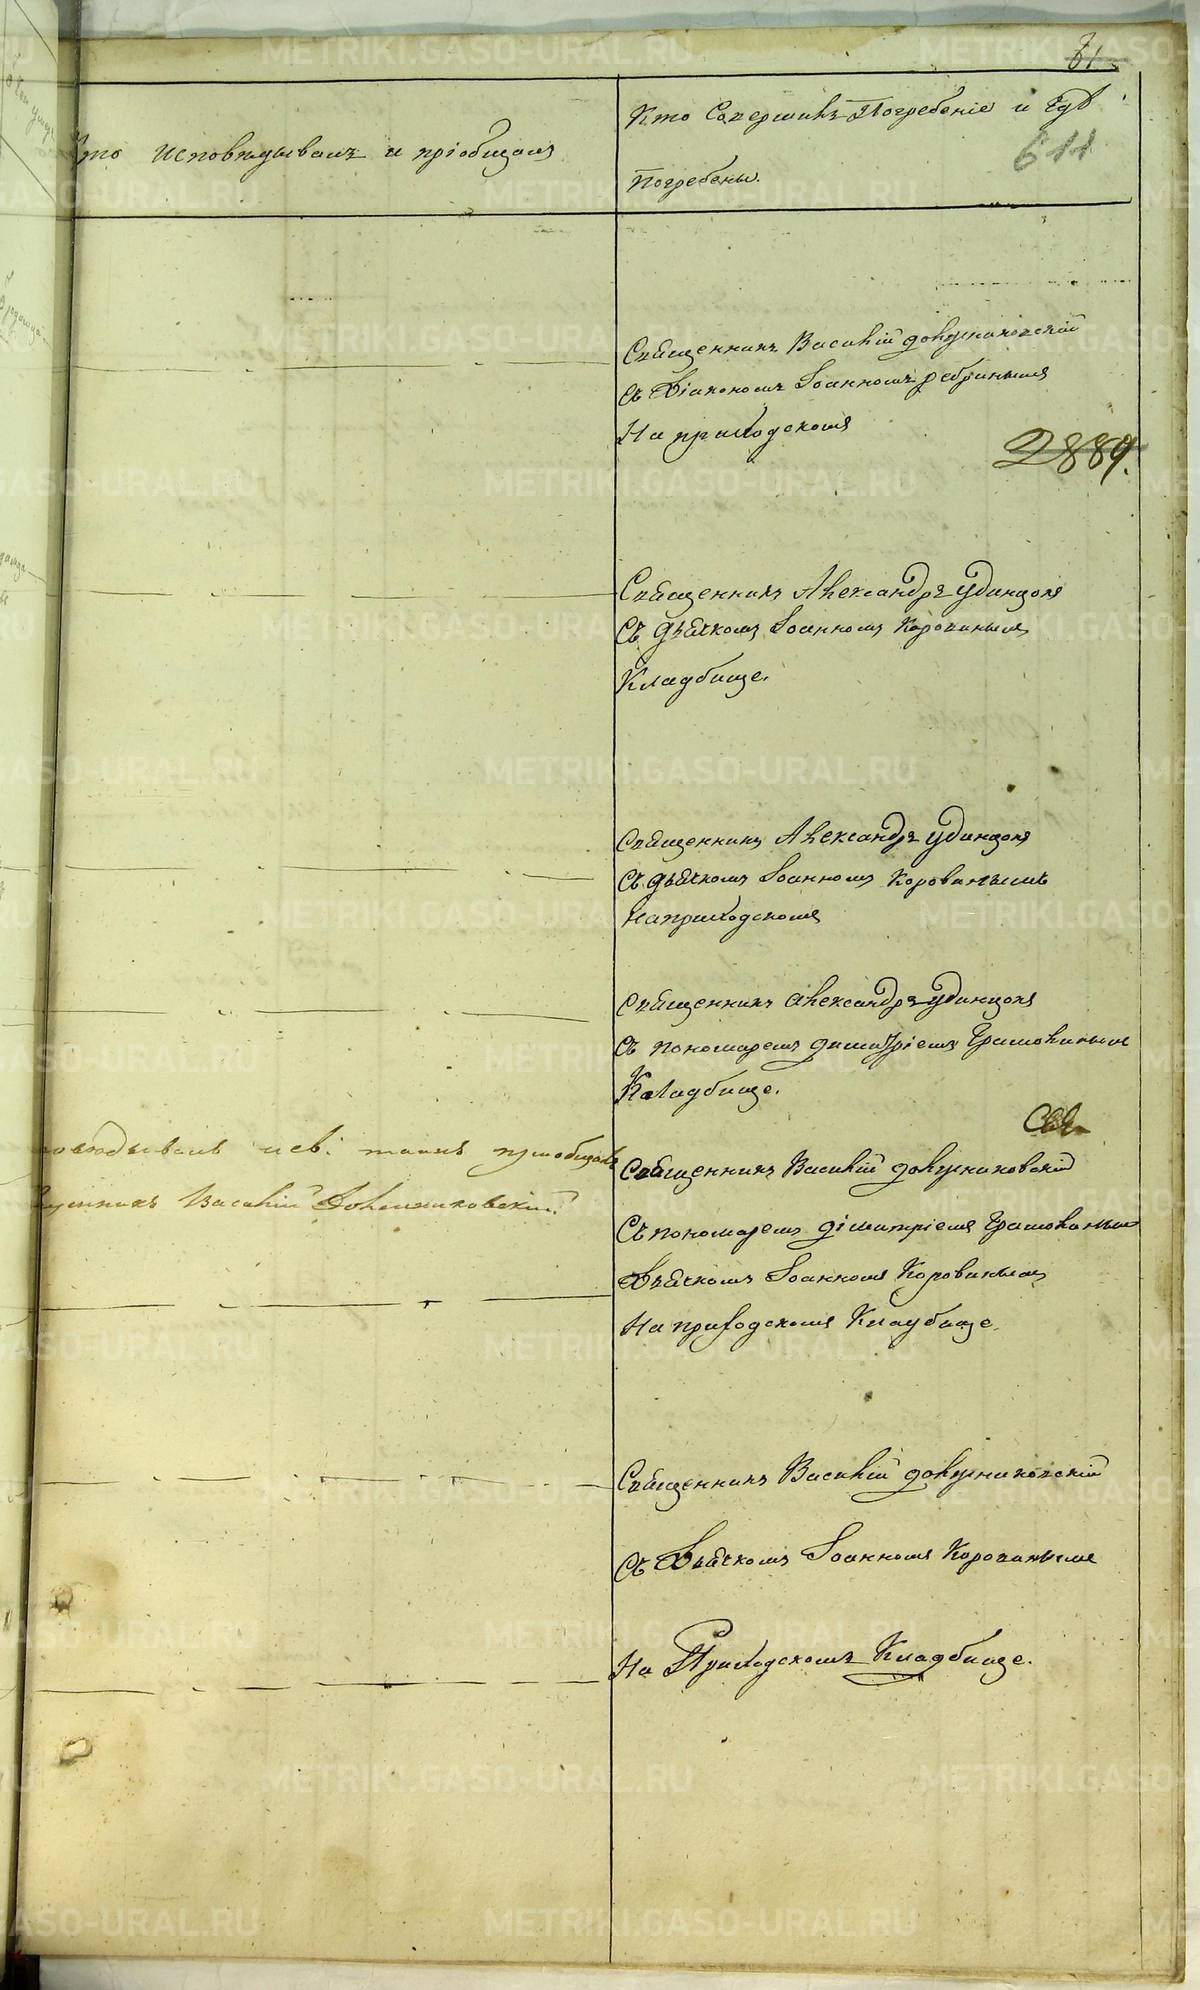 Кто исповѣдывалъ и пріобщалъ
Кто Совершилъ Погребеніе и гдѣ
611
погребены.
Священникъ Василій
съ Діакономъ Іоанномъ ребринымъ
На приходскомъ
2889.
Священникъ Александръ удинцовъ
Съ дьячкомъ Іоанномъ Коровинымъ
Кладбище.
Священникъ Александръ удинцовъ
Съ дьячкомъ Іоанномъ Коровинымъ
На приходскомъ
Священникъ александръ удинцовъ
Съ пономаремъ димитріемъ
Кладбище.
и св. таинъ пріобщалъ
Василій
Священникъ Василій
Съ пономаремъ діمитріемъ
Дьячкомъ Іоанномъ Коровинымъ
На приходскомъ Кладбище.
Священникъ Василій
Съ Дьячкомъ Іоанномъ Коровинымъ
На Приходскомъ Кладбище.
METRIKI.GASO-URAL.RU